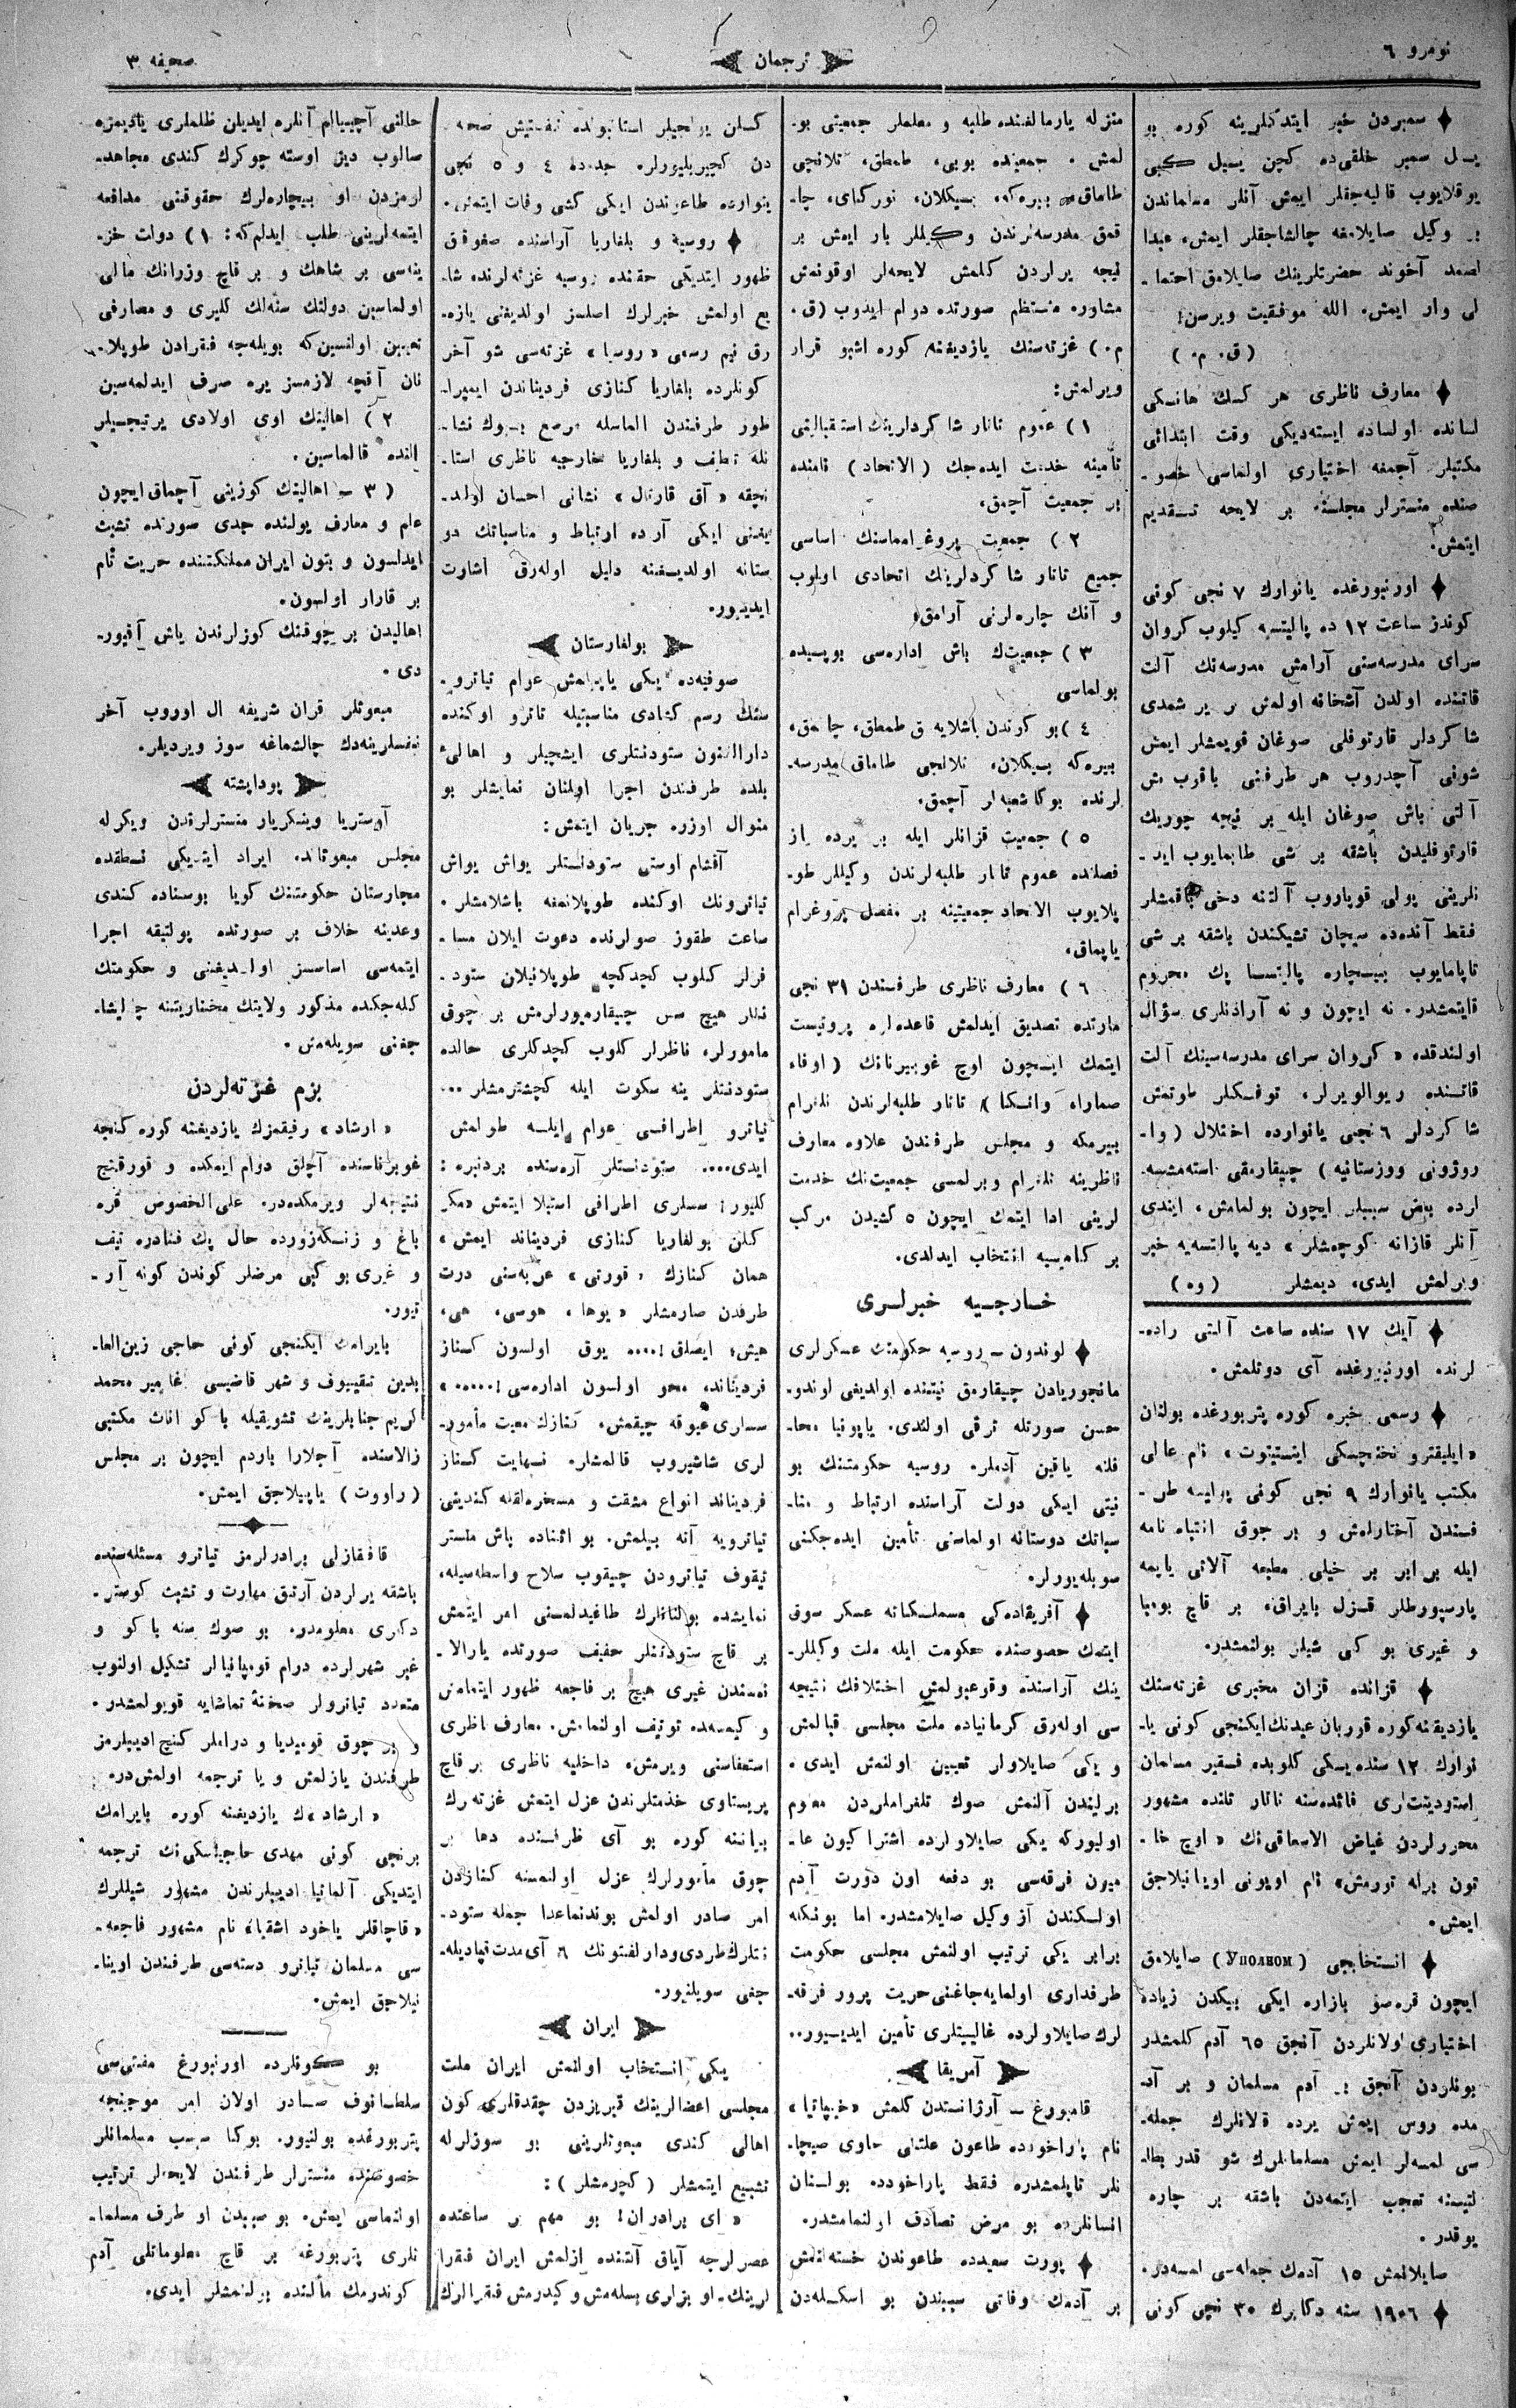 نومرو ٦
ترجمان
صحيفه ٣
سمبردن خبر ايتدكلرينه كوره بو
يـل سمبر خلقى‌ده كچن يـيل كبى
يوقلايوب قاليه‌جقلر ايمش آنلر مسلماندن
بر وكيل صايلامغه چالشاجقلر ايمش، عبدا
لصمد آخوند حضرتلرينك صايلامق احتما-
لى وار ايمش. الله موفقيت ويرسن!
(ق. م.)
معارف ناظرى هر كسك هانكى
لسانده اولساده ايسته‌ديكى وقت ابتدائى
مكتبلر آچمغه اختيارى اولماسى خصو-
صنده منسترلر مجلسنه بر لايحه تـقديم
ايتمش.
اورنبورغده يانوارك ٧ نجى كونى
كوندز ساعت ١٢ ده پاليتسيه كيلوب كروان
سراى مدرسه‌سنى آرامش مدرسه‌نك آلت
قاتنده اولدن آشخانه اولمش بر ير شمدى
شاكردلر قارتوفلى صوغان قويمشلر ايمش
شونى آچدروب هر طرفنى باقوب بش
آلتى باش صوغان ايله بر نيچه چوريك
قارتوفليدن باشقه بر شى طابمايوب ايد-
نلرينى يولى قوپاروب آلتنه دخى باقمشلر
فقط آنده‌ده سيچان تشيكندن باشقه بر شى
تاپامايوب بيـچاره پاليتسـا پك محروم
قايتمشدر. نه ايچون و نه آرادنلرى سؤال
اولندقده « كروان سراى مدرسه‌سينك آلت
قاتـنده ريوالويرلر، توفـكلر طوتمش
شاكردلر ٦ نجى يانوارده اختلال (وا-
روژونى ووزستانيه) چيقارمقى استه‌مشسه-
لرده بعض سببلر ايچون بولمامش، ايندى
آنلر قازانه كوچه‌شلر » ديه پالتسه‌يه خبر
ويرلمش ايدى، ديمشلر (وه)
آيك ١٧ سنده ساعت آلتى راده-
لرنده اورنبورغده آى دوتلمش.
رسمى خبره كوره پتربورغده بولنان
« ايليقترو تخنچسكى اينستيتوت » نام عالى
مكتب يانوارك ٩ نجى كونى پوليسه طر-
فـندن آختارلمش و بر چوق انتباه نامه
ايله برابر بر خيلى مطبعه آلاتى ياپمه
پاسپورطلر قـزل بايراق، بر قاچ بومبا
و غيرى بو كى شيلر بولنمشدر.
قزانده قزان مخبرى غزته‌سنك
يازديغنه كوره قوربان عيدنك ايكنجى كونى يا-
نوارك ١٢ سنده يسكى كلوبده فـقير مسلمان
استوديتت‌لرى فائده‌سنه تاتار تلنده مشهور
محررلردن غياض الاسحاقى‌نك « اوچ خا-
تون برله تورمش » نام اويونى اويانيلاجق
ايمش.
انـتخابجى (Уполном) صايلامق
ايچون قره‌صو بازاره ايكى بيكدن زياده
اختيارى اولانلردن آنجق ٦٥ آدم كلمشدر
بونلردن آنجق بر آدم مسلمان و بر آد-
مده روس ايمش يرده قالانلرك جمله-
سى لمسه‌لر ايمش مسلمانلرك شو قدر بطا-
لتيسنه تعجب ايتمه‌دن باشقه بر چاره
يوقدر.
صايلانمش ١٥ آدمك جمله‌سى لمسه‌در.
١٩٠٦ سنه دكابرك ٣٠ نچى كونى
منزله يارمالغنده طلبه و معلملر جمعيتى بو-
لمش. جمعيـنده بوبى، طمطق، تلانچى
طاماق، بيره‌كه، بـيكلان، نوركاى، چا-
قمق مدرسه‌لرندن وكيللر بار ايمش بر
نيچه يرلردن كلمش لايحه‌لر اوقونمش
مشاوره منـتظم صورتده دوام ايدوب (ق.
م.) غزته‌سنك يازديغنه كوره اشبو قرار
ويرلمش:
١) عموم تاتار شاكردلرينك استقبالينى
تأمينه خدمت ايده‌جك (الاتحاد) نامنده
بر جمعيت آچمق.
٢) جمعيت پروغرامماسنك اساسى
جميع تاتار شاكردلرينك اتحادى اولوب
و آنك چاره‌لرنى آرامق،
٣) جمعيتك باش اداره‌سى بوبيـده
بولماسى
٤) بو كوندن باشلايه‌ق طمطق، چامق،
بيره‌كه بـيكلان، تلانچى طاماق مدرسه-
لرنده بوكا شعبه‌لر آچمق.
٥) جمعيت قزانلر ايله بر يرده ياز
فصلنده عموم تاتار طلبه‌لرندن وكيللر طو-
پلايوب الاتحاد جمعيتينه بر مفصل پروغرام
ياپماق.
٦) معارف ناظرى طرفـندن ٣١ نجى
مارتده تصديق ايدلمش قاعده‌لره پروتيست
ايتمك ايـچون اوچ غوبيرنانك (اوفا،
صمارا، واتـكا) تاتار طلبه‌لرندن تلغرام
بيرمكه و مجلس طرفندن علاوه معارف
ناظرينه تلغرام ويرلمسى جمعيت‌نك خدمت
لرينى ادا ايتمك ايچون ٥ كشيدن مركب
بر كاميسيه انتخاب ايدلدى.
خـارجـيه خبرلـرى
لوندون — روسيه حكومتى عسكرلرى
مانجوريادن چيقارمق نيتنده اولديغى لوندو-
حسن صورتله ترقى اولندى. ياپونيا محا-
فلنه ياقين آدملر. روسيه حكومتـنك بو
نيتى ايكى دولت آراسنده ارتباط و منا-
سباتك دوستانه اولماسنى تأمين ايده‌جكنى
سويله‌يورلر.
آفريقاده‌كى مسملـكـاته عسكر سوق
ايتمك خصوصنده حكومت ايله ملت وكيللر-
ينك آراسنده وقوعبولمش اختلافك نتيجه
سى اوله‌رق كرمانياده ملت مجلسى قپالمش
و يكى صايلاولر تعيين اولنمش ايدى.
برليندن آلنمش صوك تلغرافلردن معلوم
اوليوركه يكى صايلاولرده اشتراكيون عا-
ميون فرقه‌سى بو دفعه اون دورت آدم
اولـكندن آز وكيل صايلامشدر. اما بونكله
برابر يكى ترتيب اولنمش مجلسى حكومت
طرفدارى اولمايه‌جاغنى حريت پرور فرقه-
لرك صايلاولرده غالبيتلرى تأمين ايديـيور..
آمريقا
قامبورغ — آرژانستدن كلمش « خيپانيا »
نام پاراخودده طاعون علتنى حاوى صيچا-
نلر تاپلمشدره فـقط پاراخودده بولـنان
انسانلرده بو مرض تصادف اولنمامشدر.
پورت سعيدده طاعوندن خسته‌لنمش
بر آدمك وفاتى سببندن بو اسكـله‌دن
كـلن يولجيلر استانبولده تفـتيش صحه-
دن كچيريليورلر. جدده ٤ و ٥ نجى
ينوارده طاعوندن ايكى كشى وفات ايتمش.
روسيه و بلغاريا آراسنده صغوقلق
ظهور ايتديكى حقنده روسيه غزته‌لرنده شا-
يع اولمش خبرلرك اصلسز اولديغنى يازه-
رق نيم رسمى « روسيا » غزته‌سى شو آخر
كونلرده بلغاريا كنازى فرديناندن ايمپرا-
طور طرفندن الماسله مرصع بـيوك نشا-
نله تطيف و بلغاريا خارجيه ناظرى استا-
نچقه « آق قارتال » نشانى احسان اولد-
يغنى ايكى آرده ارتباط و مناسباتك دو
ستانه اولديـغنه دليل اوله‌رق اشارت
ايديیور.
بولغارستان
صوفيه‌ده يكى ياپيلمش عوام تياترو-
سنك رسم كشادى مناسبتيله تاترو اوكنده
دارالفنون ستودنتلرى ايشچيلر و اهالىء
بلده طرفندن اجرا اولنان نمايشلر بو
منوال اوزره جريان ايتمش:
آقشام اوستى ستودنـتلر يواش يواش
تياترونك اوكنده طوپلانمغه باشلامشلر.
ساعت طقوز صولرنده دعوت ايلان مسا-
فرلر كلوب كچدكچه طوپلانيلان ستود-
نتلر هيچ سس چيقارميورلرمش بر چوق
مامورلر، ناظرلر كلوب كچدكلرى حالده
ستودنتلر ينه سكوت ايله كچشترمشلر ...
تياترو اطرافى عوام ايلـه طولمش
ايدى.... ستودنـتلر آره‌سنده بردنبره:
كليور! سسلرى اطرافى استيلا ايتمش مكر
كلن بولغاريا كنازى فرديناند ايمش،
همان كنازك « قورتى » عربه‌سنى درت
طرفدن صارمشلر « يوها، هوسى، هى،
هيش؛ ايصلق!.... يوق اولسون كـناز
فرديناند، محو اولسون اداره‌سى!.....،
سسلرى عيوقه چيقمش. كنازك معيت مأمور-
لرى شاشيروب قالمشلر. نـهايت كـناز
فرديناند انواع مشقت و مسخره‌لقله كندينى
تياترويه آته بيلمش. بو اثناده باش منستر
تيقوف تياترودن چيقوب سلاح واسطه‌سيله،
نمايشده بولنانلرك طاغيدلمسنى امر ايتمش
بر قاچ ستودنتلر خفيف صورتده يارالا-
نمسندن غيرى هيچ بر فاجعه ظهور ايتمامش
و كيمسه‌ده توقيف اولنمامش. معارف ناظرى
استعفاسنى ويرمش، داخليه ناظرى بر قاچ
پريستاوى خدمتلرندن عزل ايتمش غزته‌رك
بياننه كوره بو آى ظرفـنده دها بر
چوق مأمورلرك عزل اولنمسنه كنازدن
امر صادر اولمش بوندنماعدا جمله ستود-
نتلرك طردى و دارلفنونك ٦ آى مدت قپاديله-
جغى سويلنيور.
ايران
يكى انـتخاب اولنمش ايران ملت
مجلسى اعضالرينك تبريزدن چقدقلرى كون
اهالى كندى مبعوثلرينى بو سوزلرله
تشييع ايتمشلر (كچرمشلر):
« اى برادران! بو مهم بر ساعتده
عصرلرجه آياق آلتنده ازلمش ايران فـقرا
لرينك، او بزلرى بسله‌مش و كيدرمش فقرالرك
حالنى آچييالم آنلره ايديلن ظلملرى يادميزه
صالوب ديز اوسته چوكرك كندى مجاهد-
لرمزدن او بيچاره‌لرك حقوقنى مدافعه
ايتمه‌لرينى طلب ايدلم كه: ١) دولت خز-
ينه‌سى بر شاهك و بر قاچ وزرانك مالى
اولماسين دولتك سنه‌لك كليرى و مصارفى
تعيين اولنسين كه بويله‌جه فقرادن طوپلا-
نان آقچه لازمسز يره صرف ايدلمه‌سين
٢) اهالينك اوى اولادى يرتيجـيلر
النده قالماسين.
(٣ — اهالينك كوزينى آچماق ايچون
علم و معارف يولنده جدى صورتده تشبث
ايدلسون و بتون ايران مملكتنده حريت تام
بر قرار اولسون.
اهاليدن بر چوقنك كوزلرندن ياش آقيور-
دى.
مبعوثلر قران شريفه ال اوروب آخر
نفسلرينه‌دك چالشماغه سوز ويرديلر.
بوداپشته
آوستريا وينـكريار منسترلرندن ويكرله
مجلس مبعوثانده ايراد ايتديكى نـطقده
مجارستان حكومتنك كويا بوسناده كندى
وعدينه خلاف بر صورتده پولتيقه اجرا
ايتمه‌سى اساسسز اولديغنى و حكومتك
كله‌جكده مذكور ولايتك مختاريتنه چـليشا-
جغنى سويله‌مش.
بزم غـزته‌لردن
« ارشاد » رفيقمزك يازديغنه كوره كنجه
غوبرناسنده آچلق دوام ايمكده و قورقنج
نتيجه‌لر ويرمكده‌در. على‌الخصوص قره
باغ و زنـكه‌زورده حال پك فنادره تيف
و غيرى بو كبى مرضلر كوندن كونه آر-
تيور.
بايرامك ايكنجى كونى حاجى زين‌العا-
بدين تـقييوف و شهر قاضيسى غا مير محمد
كريم جنابلرينك تشويقيله باكو اناث مكتبى
زالاسنده آچلارا ياردم ايچون بر مجلس
(راووت) ياپيلاجق ايمش.
قافقازلى برادرلرمز تياترو مسئله‌سنده
باشقه يرلردن آرتق مهارت و تشبث كوستر-
دكلرى معلومدر. بو صوك سنه باكو و
غير شهرلرده درام قومپانيالر تشكيل اولنوب
متعدد تياترولر صحنهٔ تماشايه قويولمشدر.
و بر چوق قوميديا و دراملر كنج اديبلرمز
طرفندن يازلمش و يا ترجمه اولمش‌دره
« ارشاد »ك يازديغنه كوره بايرامك
برنجى كونى مهدى حاجينسكى‌نك ترجمه
ايتديكى آلمانيا اديبلرندن مشهور شيللرك
« قاچاقلر ياخود اشقيا » نام مشهور فاجعه-
سى مسلمان تياترو دسته‌سى طرفندن اوينا-
نيلاجق ايمش.
بو كونلرده اورنبورغ مفتى‌سى
سلطـانوف صـادر اولان امر موجبنجه
پتربورغده بولنيور. بوكا سبب مسلمانلر
خصوصنده منسترلر طرفندن لايحه‌لر ترتيب
اولنماسى ايمش. بو سببدن او طرف مسلما-
نلرى پتربورغه بر قاچ معلوماتلى آدم
كوندرمك مأملنده بولنمشلر ايدى.